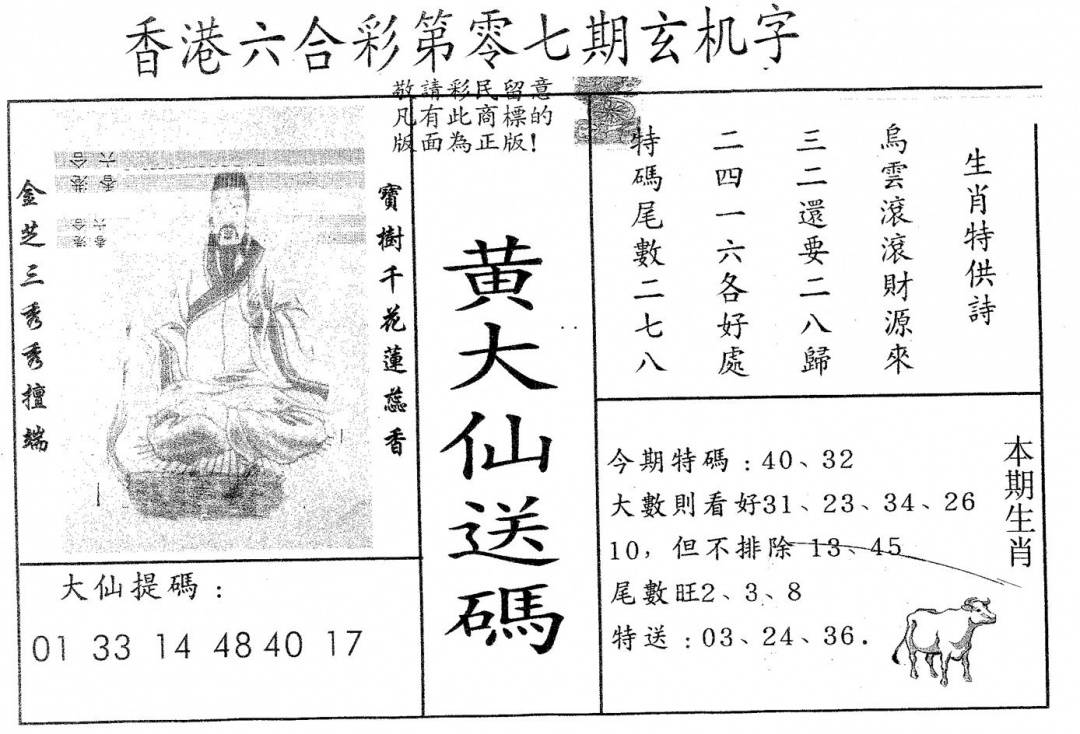 香港六合彩第零七期玄机字
敬請彩民留意
凡有此商標的
版面為正版！
寶樹千花蓮蕊香
金芝三秀秀擅端
香港六合
香港六合
黄大仙送碼
生肖特供詩
烏雲滾滾財源來
三二還要二八歸
二四一六各好處
特碼尾數二七八
大仙提碼：
01 33 14 48 40 17
本期生肖
今期特碼：40、32
大數則看好31、23、34、26
10，但不排除 13、45
尾數旺2、3、8
特送：03、24、36.